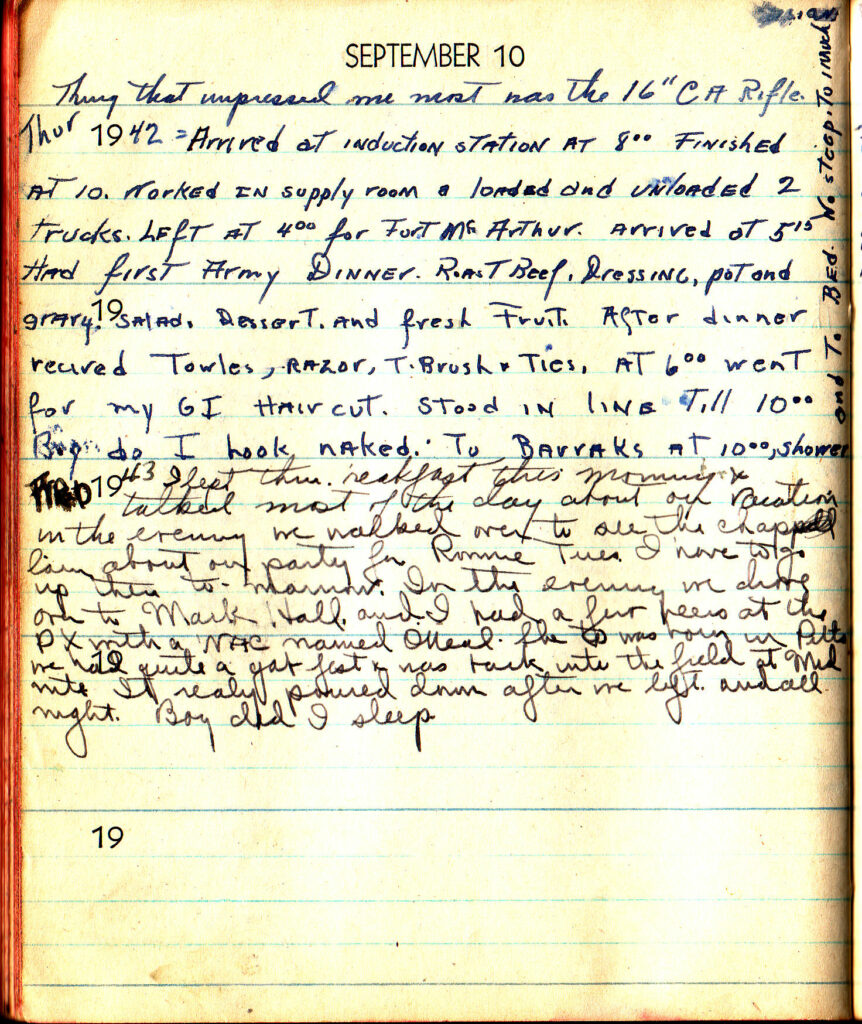 SEPTEMBER 10
Thing that impressed me most was the 16" CA Rifle.
Thur 1942 = Arrived at induction station at 8ºº Finished
at 10. Worked in supply room & loaded and unloaded 2
trucks. Left at 4ºº for Fort McArthur. Arrived at 5¹⁵
Had first Army Dinner. Roast Beef, Dressing, pot and
gravy. Salad. Dessert. and fresh Fruit. After dinner
19
recived Towles, Razor, T. Brush & Ties. At 6ºº went
for my GI Haircut. Stood in line Till 10ºº
Boy do I look naked. To Barraks at 10ºº, shower
and To Bed. No sleep. To much
Fri 1943 I slept thru this morning &
talked most of the day about our vacation
in the evening we walked over to see the chap
lain about our party for Ronnie Tues. I have to go
up there to-morrow. In the evening we drove
over to Mark Hall and I had a few beers at the
PX with a named ONeal. She was born in Pitts
we had quite a gab fest & was back into the field at Mid
nite It realy poured down after we left. and all
night. Boy did I sleep
19